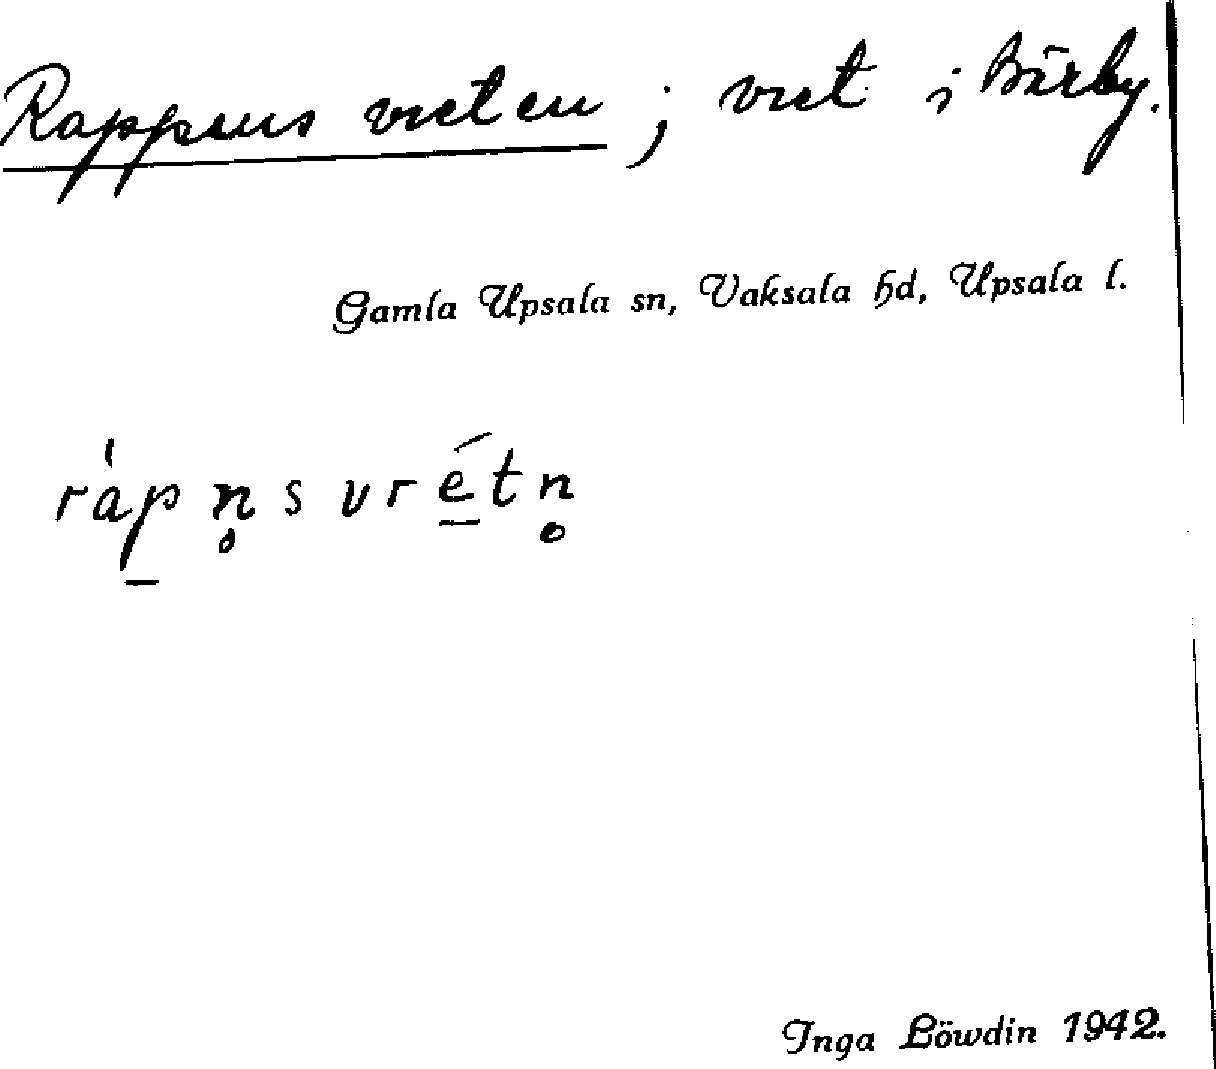 Rappens vreten ; vret i Bärby.
Gamla Upsala sn, Vaksala hd, Upsala l.
ràp̱n̥svré̱tn̥
Inga Löwdin 1942.